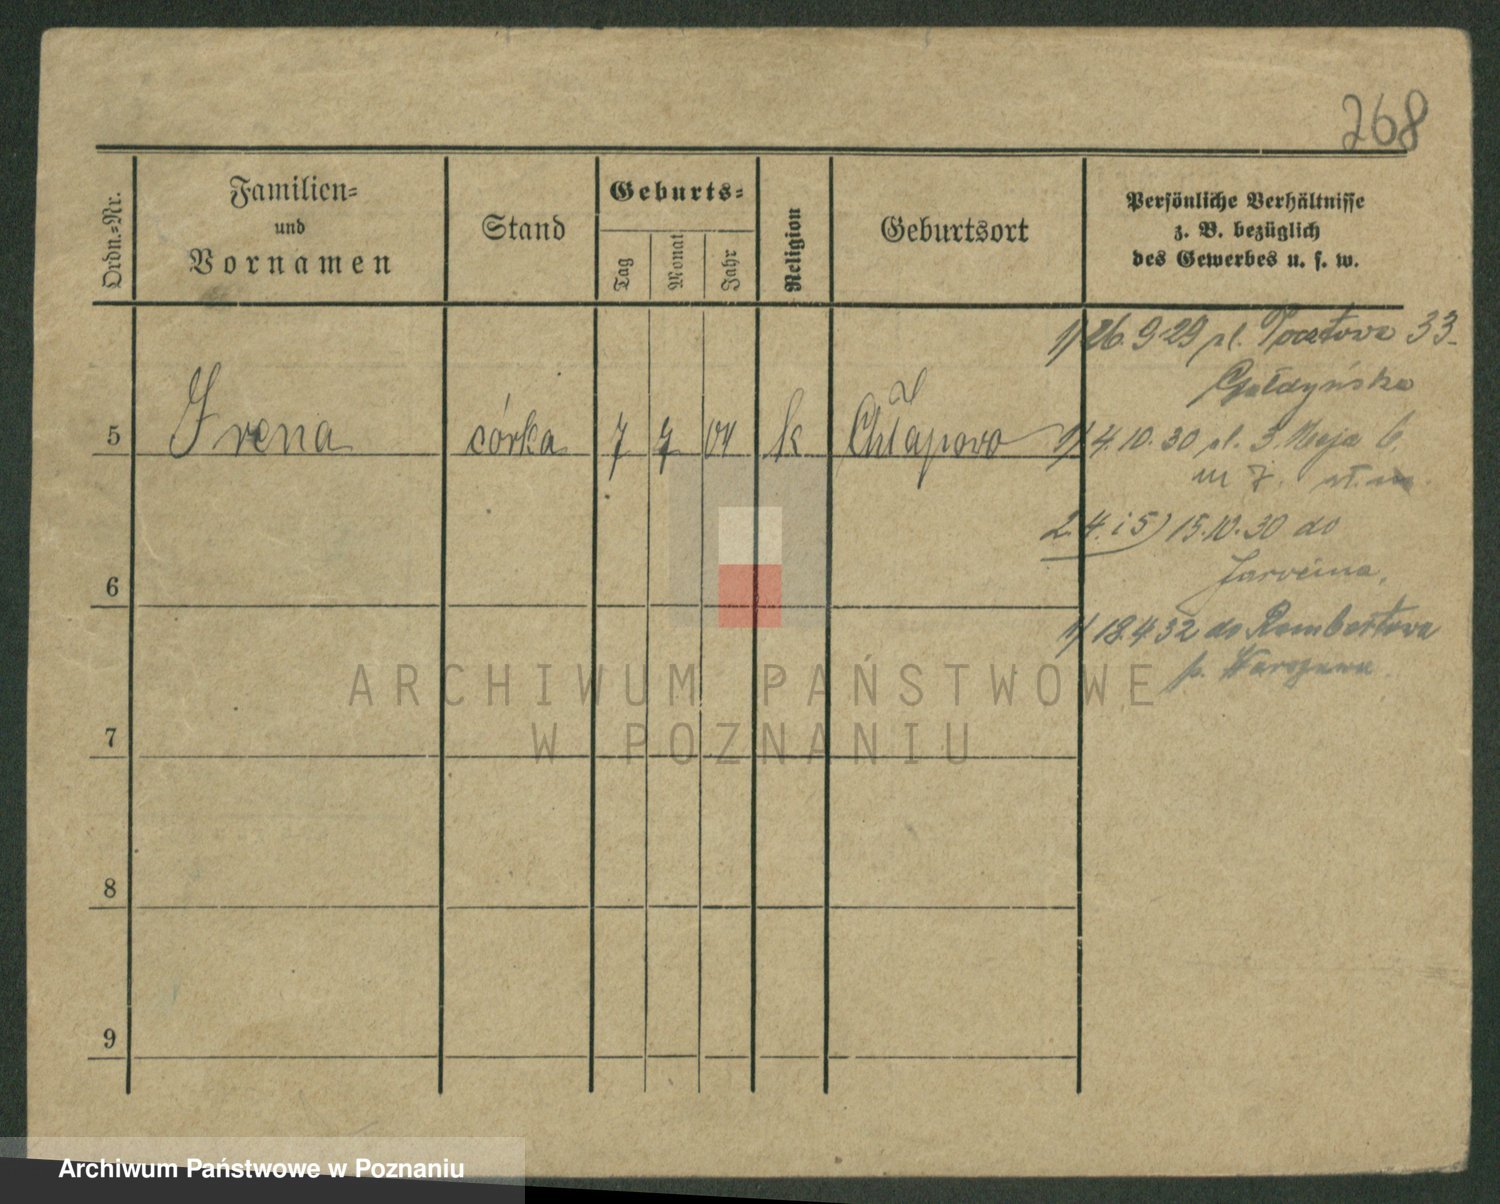 268
Ordn.-Nr.
Familien-
und
Vornamen
Stand
Geburts-
Tag
Monat
Jahr
Religion
Geburtsort
Persönliche Verhältnisse
z. B. bezüglich
des Gewerbes u. s. w.
1) 26.9.29 pl. Pocztowa 33.
5 Irena córka 7 7 04 k Chłapowo
1) 4.10.30 pl. 3 Maja 6.
m 7.
2. 4. i 5) 15.10.30 do
Jarocina.
6
1) 18.4.32 do Rembertowa
p. Warszawa.
7
8
9
ARCHIWUM PAŃSTWOWE
W POZNANIU
Archiwum Państwowe w Poznaniu